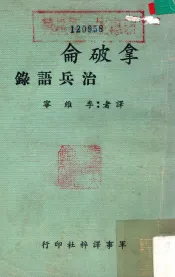 120958
拿破侖
治兵語錄
譯者：李維寧
軍事譯梓社印行